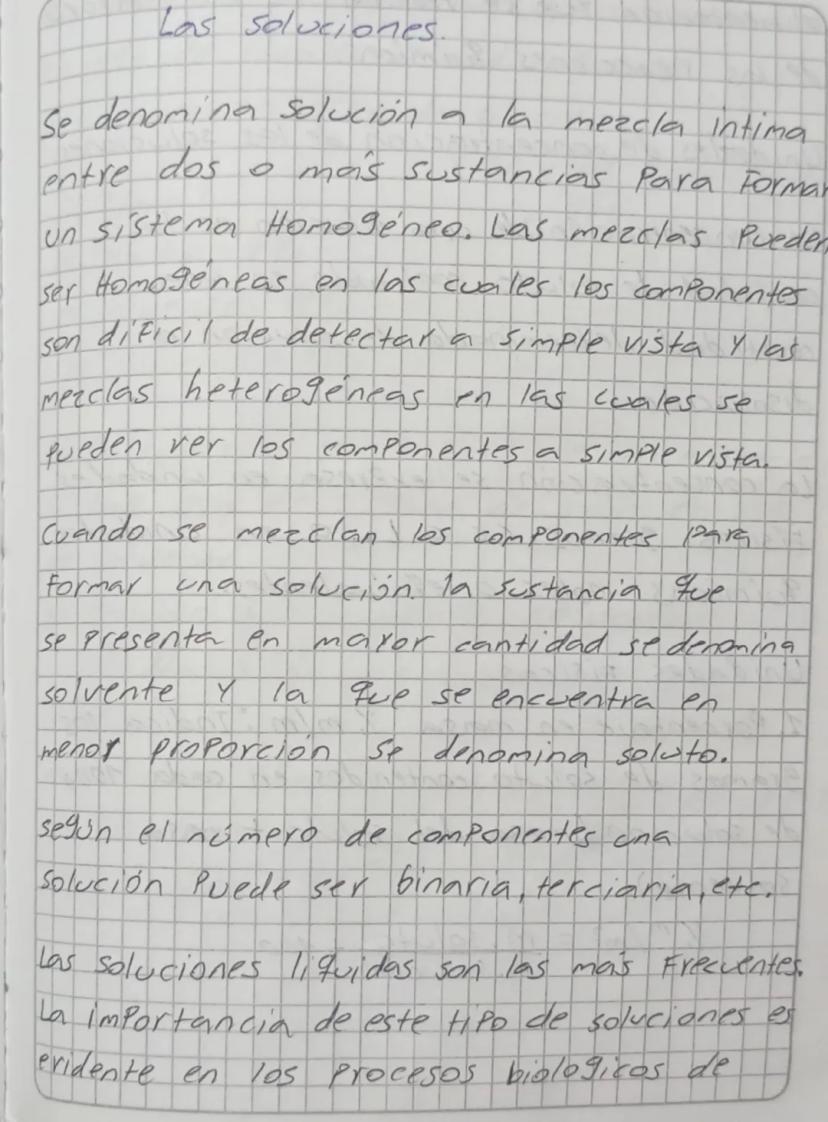 Las soluciones.
Se denomina solución a la mezcla intima
entre dos o más sustancias Para Formar
un sistema Homogéneo. Las mezclas Pueden
ser Homogéneas en las cuales los componentes
son dificil de detectar a simple vista y las
mezclas heterogéneas en las cuales se
pueden ver los componentes a simple vista.
Cuando se mezclan los componentes para
formar una solución la sustancia que
se presenta en mayor cantidad se denomina
solvente y la que se encuentra en
menor proporción se denomina soluto.
según el número de componentes una
solución Puede ser binaria, terciaria, etc.
Las soluciones liquidas son las más Frecuentes.
La importancia de este tipo de soluciones es
evidente en los procesos biologicos de